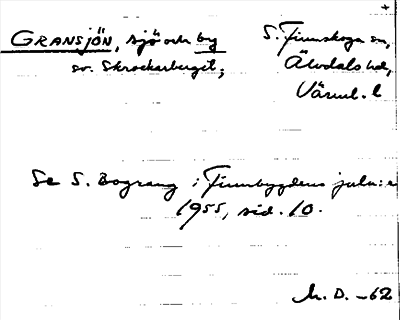 GRANSJÖN, sjö och by S. Finnskoga sn,
sv. Skrockarberget; Älvdals hd,
Värml. l
Se S. Bograng i Finnbygdens juln:r
1955, sid. 10.
h. D. -62